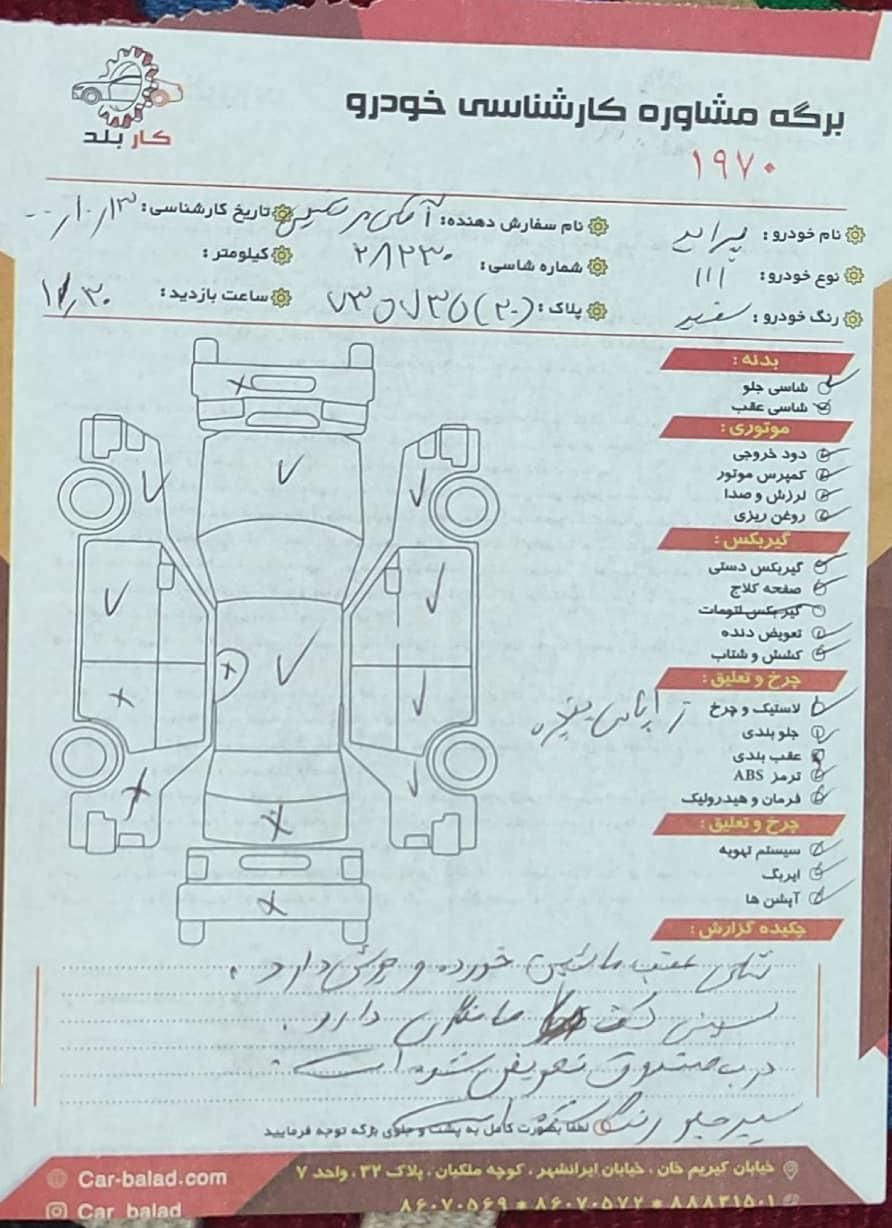 کار بلد
برگه مشاوره کارشناسی خودرو
۱۹۷۰
نام خودرو : پراید
نام سفارش دهنده: آقای
تاریخ کارشناسی: ۱۳
نوع خودرو : ۱۱۱
شماره شاسی: ۲۸۲۳۰
کیلومتر :
رنگ خودرو : سفید
پلاک : (۲۰)
ساعت بازدید : ۳۰
بدنه :
شاسی جلو
شاسی عقب
موتوری :
دود خروجی
کمپرس موتور
لرزش و صدا
روغن ریزی
گیربکس :
گیربکس دستی
صفحه کلاچ
گیربکس اتومات
تعویض دنده
کشش و شتاب
چرخ و تعلیق :
لاستیک و چرخ
جلو بندی
عقب بندی
ترمز ABS
فرمان و هیدرولیک
چرخ و تعلیق :
سیستم تهویه
ایربگ
آپشن ها
چکیده گزارش :
عقب ماشین خورده و جوش دارد .
کف دارد .
درب صندوق تعویض شده است .
سپر جلو رنگ است
لطفا بصورت کامل به پشت و جلوی برگه توجه فرمایید
خیابان کریم خان ، خیابان ایرانشهر ، کوچه ملکیان ، پلاک ۳۲ ، واحد ۷
Car-balad.com
۸۸۸۳۱۵۰۱ * ۸۶۰۷۰۵۷۲ * ۸۶۰۷۰۵۶۹
Car_balad